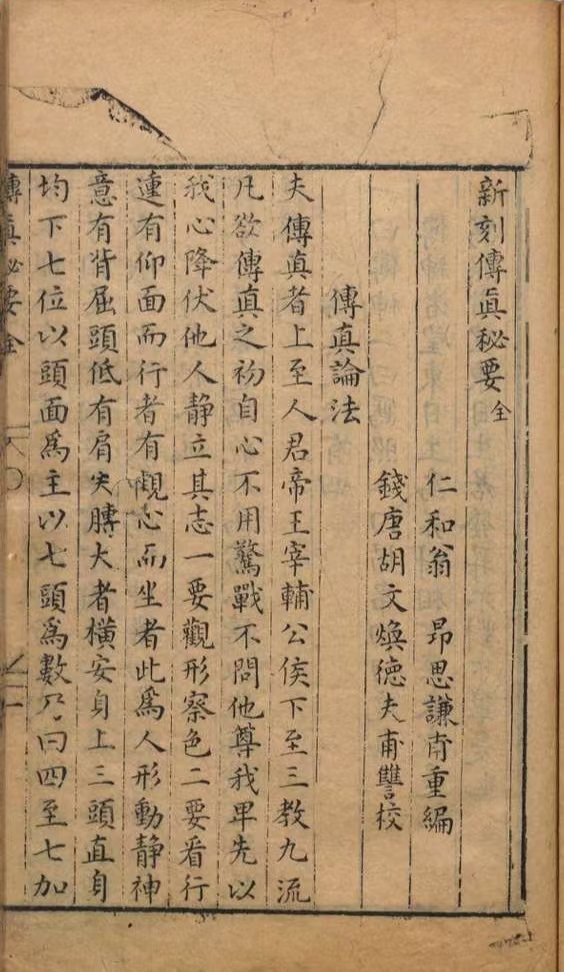 新刻傳真秘要全
仁和翁　昂思謙甫重編
錢唐胡文煥德夫甫讐校
傳真論法
夫傳真者上至人君帝王宰輔公侯下至三教九流
凡欲傳真之初自心不用驚戰不問他尊我卑先以
我心降伏他人静立其志一要觀形察色二要看行
運有仰面而行者有覩心而坐者此爲人形動静神
意有背屈頭低有肩尖膊大者橫安身上三頭直身
均下七位以頭面爲主以七頭爲數乃曰四至七加
傳真秘要全